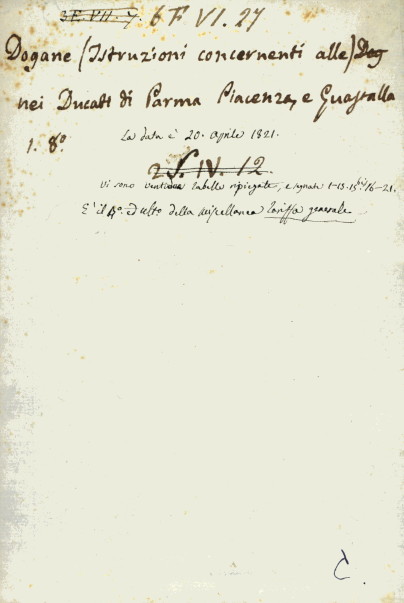 3 F. VII. 7. 6 F VI. 27
Dogane (Istruzioni concernenti alle) Dog
nei Ducati di Parma Piacenza, e Guastalla
1. 8º.
La data è 20. Aprile 1821.
2 S. IV. 12.
Vi sono ventidue tabelle ripiegate, e segnate 1-15. 15bis 16-21.
È il 4º. ed ulto della miscellanea tariffa generale.